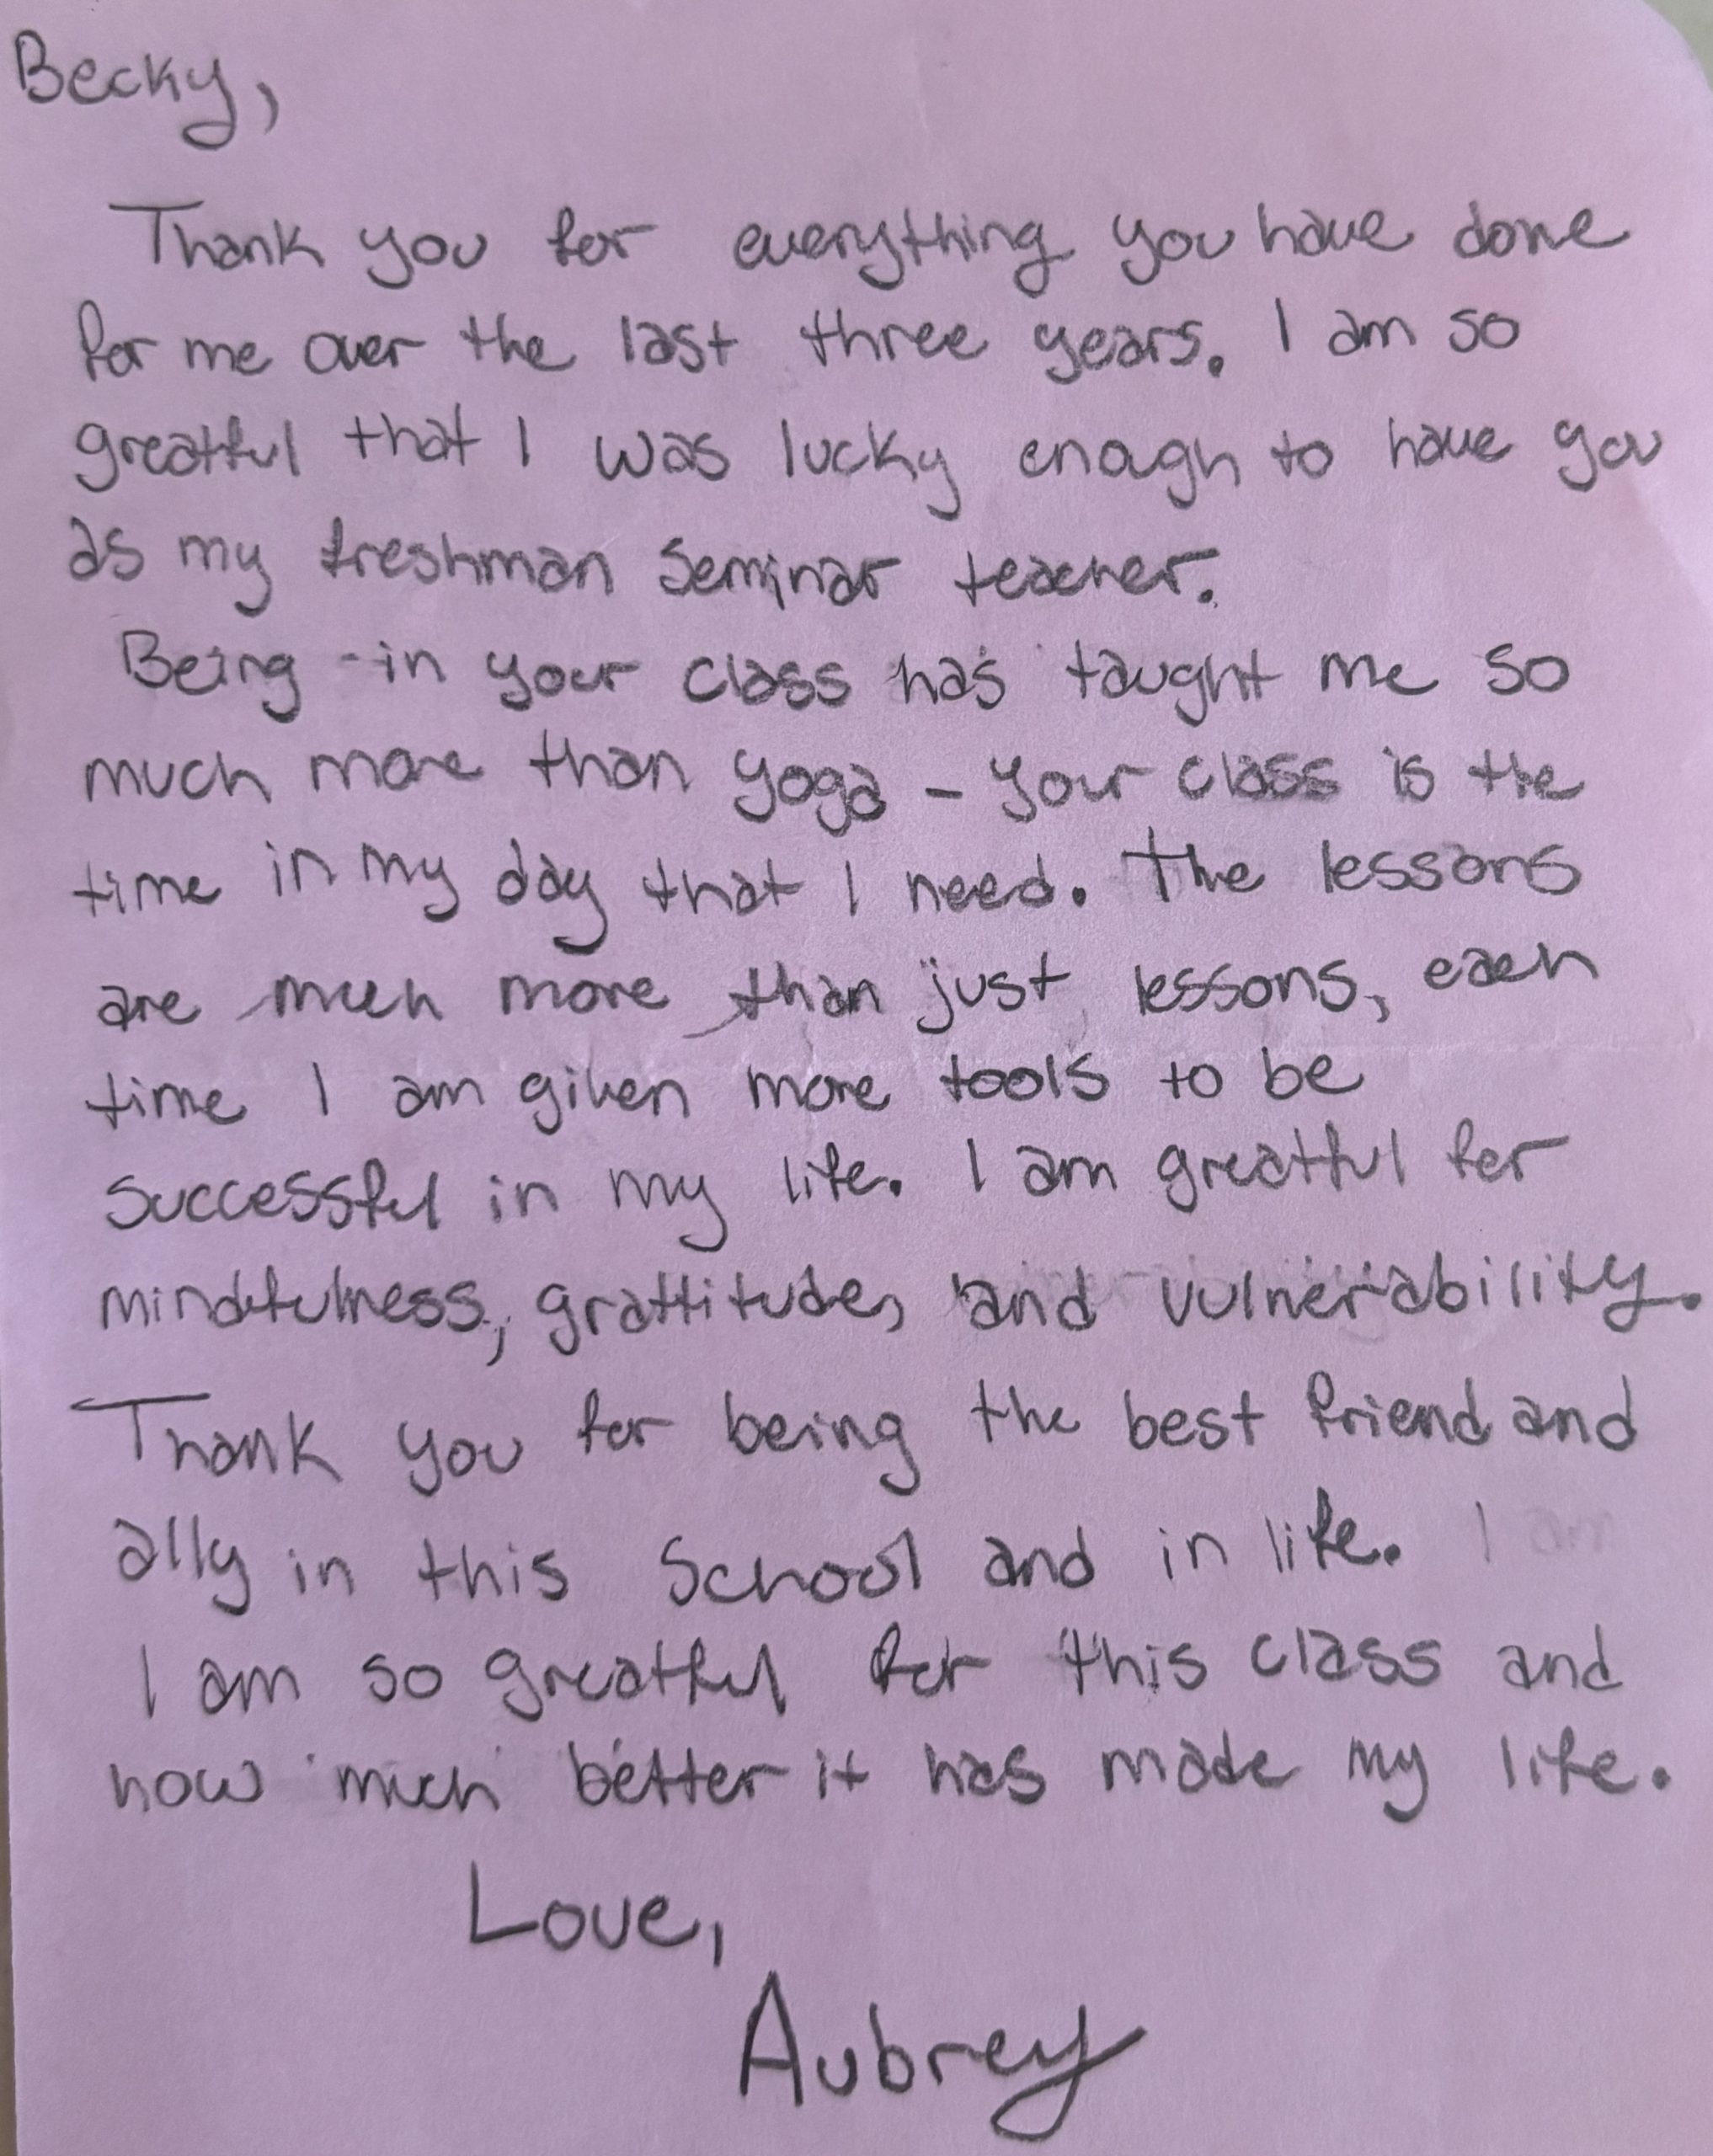 Becky,
Thank you for everything you have done
for me over the last three years. I am so
greatful that I was lucky enough to have you
as my freshman seminar teacher.
Being in your class has taught me so
much more than yoga - your class is the
time in my day that I need. The lessons
are much more than just lessons, each
time I am given more tools to be
successful in my life. I am greatful for
mindfulness, grattitude, and vulnerability.
Thank you for being the best friend and
ally in this School and in life. I am
I am so greatful for this class and
how much better it has made my life.
Love,
Aubrey